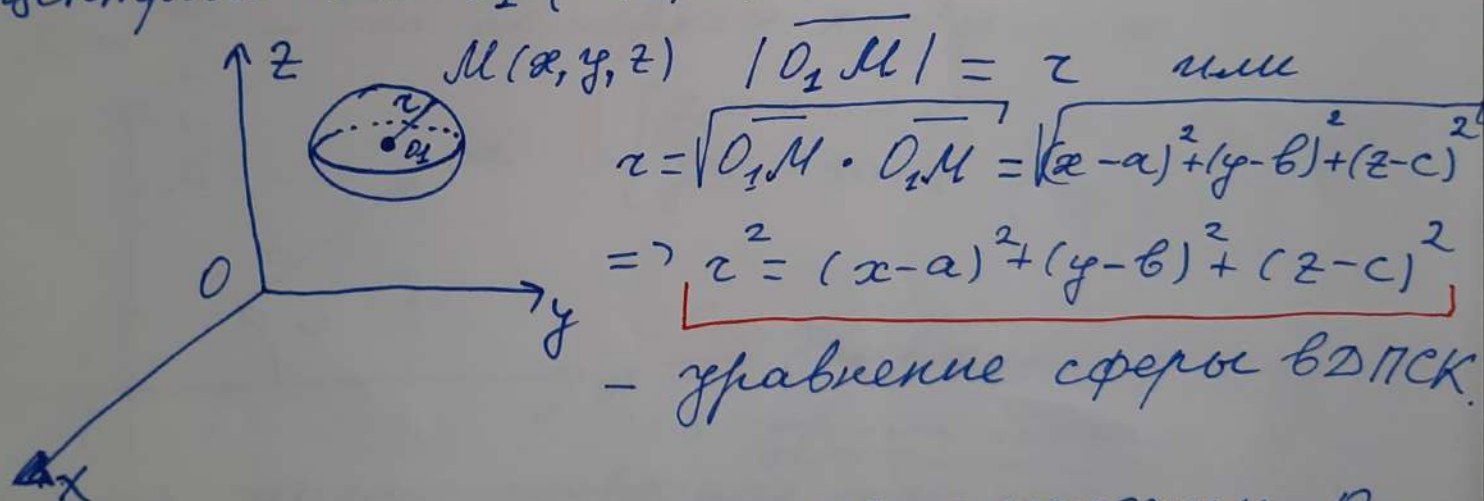 z
M(x, y, z) |O₁M| = r или
r
O₁
r = √(O₁M · O₁M) = √((x-a)²+(y-b)²+(z-c)²)
=> r² = (x-a)²+(y-b)²+(z-c)²
O
y
- уравнение сферы в ДПСК.
x